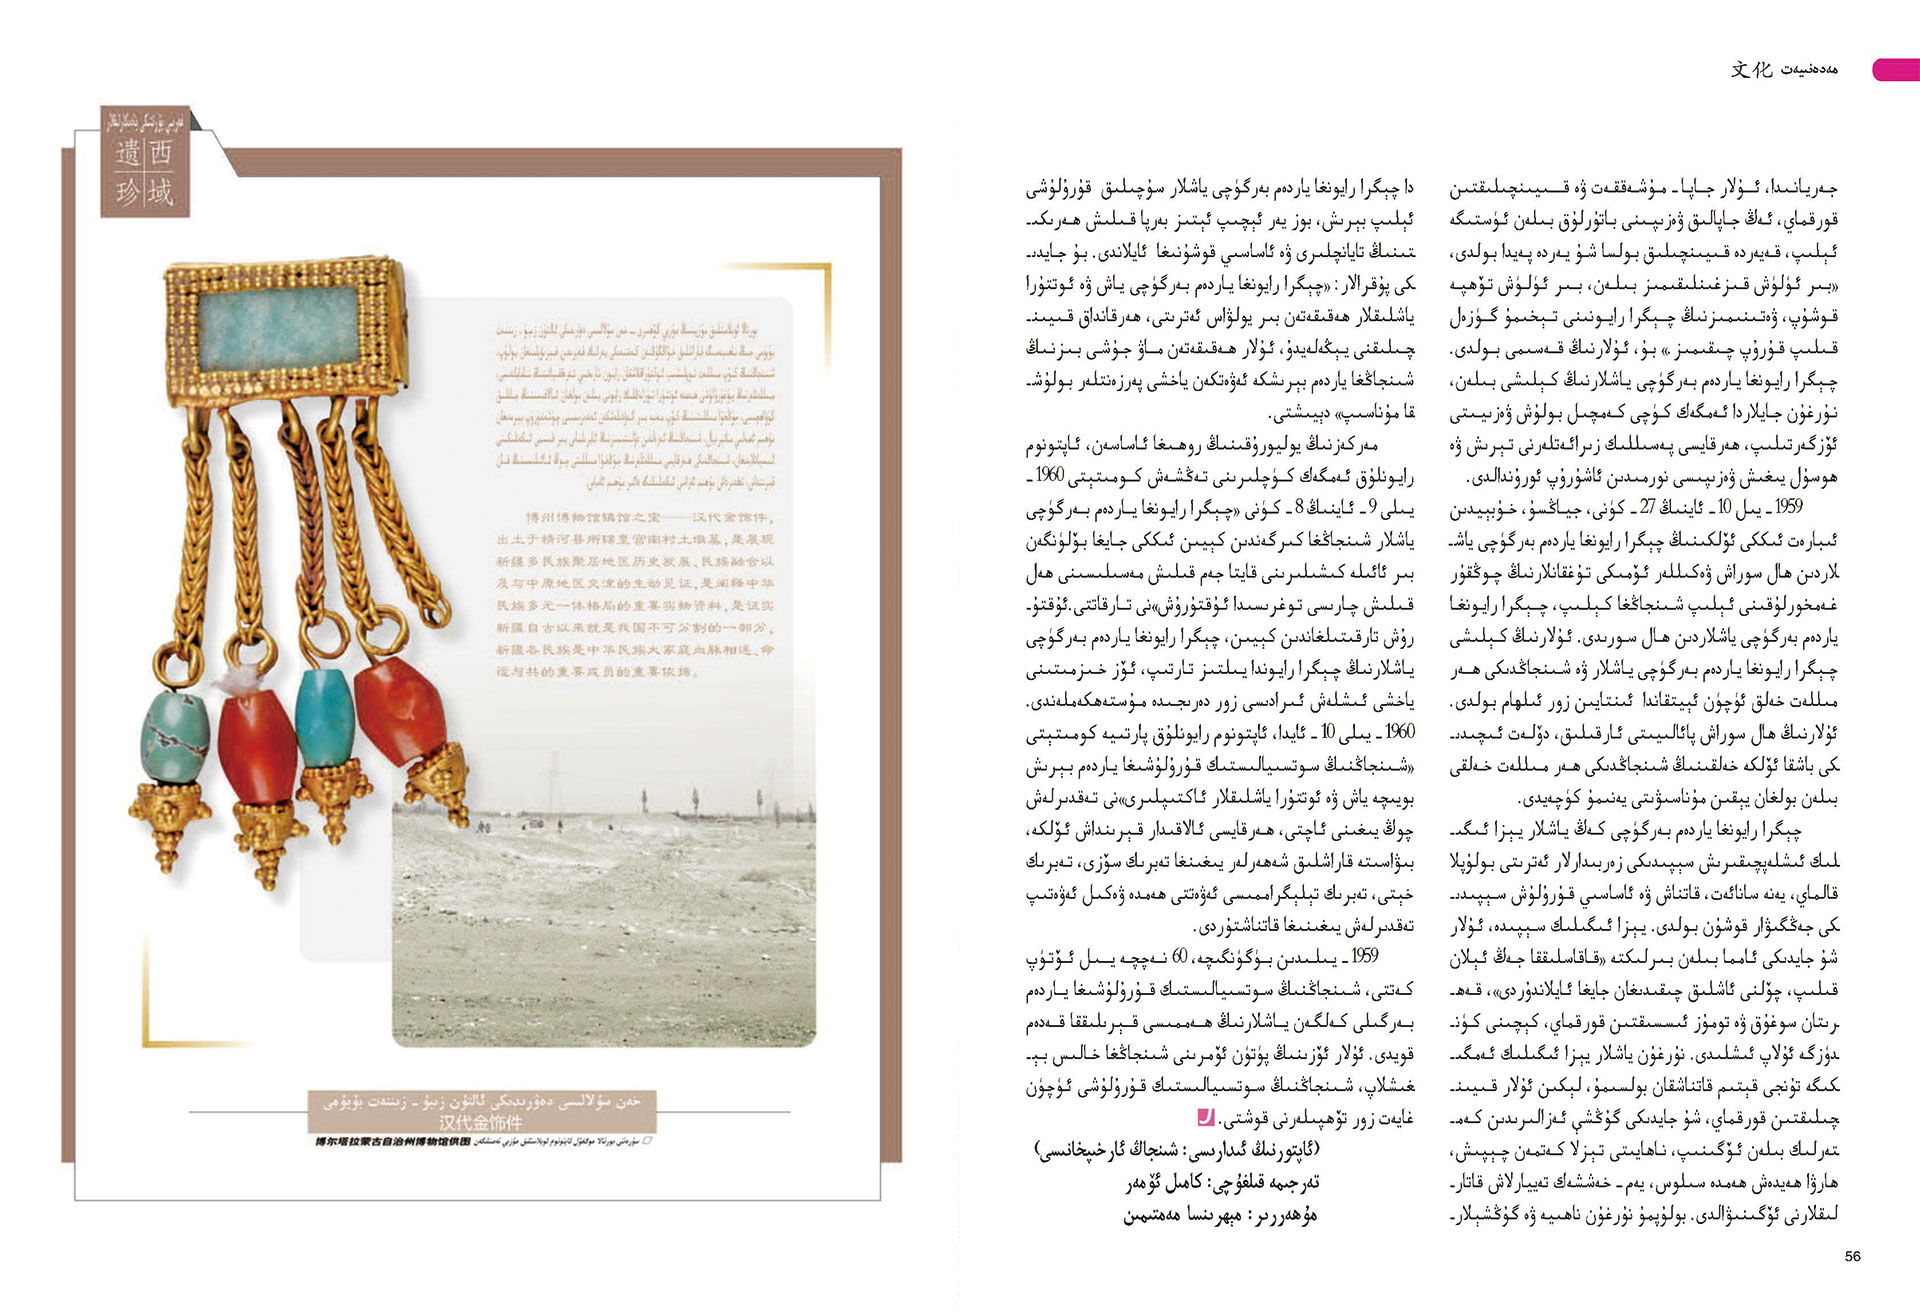 مەدەنىيەت 文化
جەريانىدا، ئۇلار جاپا ـ مۇشەققەت ۋە قىيىنچىلىقتىن
قورقماي، ئەڭ جاپالىق ۋەزىپىنى باتۇرلۇق بىلەن ئۈستىگە
ئېلىپ، قەيەردە قىيىنچىلىق بولسا شۇ يەردە پەيدا بولدى،
«بىر ئۈلۈش قىزغىنلىقىمىز بىلەن، بىر ئۈلۈش تۆھپە
قوشۇپ، ۋەتىنىمىزنىڭ چېگرا رايونىنى تېخىمۇ گۈزەل
قىلىپ قۇرۇپ چىقىمىز.» بۇ، ئۇلارنىڭ قەسىمى بولدى.
چېگرا رايونغا ياردەم بەرگۈچى ياشلارنىڭ كېلىشى بىلەن،
نۇرغۇن جايلاردا ئەمگەك كۈچى كەمچىل بولۇش ۋەزىيىتى
ئۆزگەرتىلىپ، ھەرقايسى پەسىللىك زىرائەتلەرنى تېرىش ۋە
ھوسۇل يىغىش ۋەزىپىسى نورمىدىن ئاشۇرۇپ ئورۇندالدى.
1959 ـ يىل 10 ـ ئاينىڭ 27 ـ كۈنى، جياڭسۇ، خۇبېيدىن
ئىبارەت ئىككى ئۆلكىنىڭ چېگرا رايونغا ياردەم بەرگۈچى ياشـ
لاردىن ھال سوراش ۋەكىللەر ئۆمىكى تۇغقانلارنىڭ چوڭقۇر
غەمخورلۇقىنى ئېلىپ شىنجاڭغا كېلىپ، چېگرا رايونغا
ياردەم بەرگۈچى ياشلاردىن ھال سورىدى. ئۇلارنىڭ كېلىشى
چېگرا رايونغا ياردەم بەرگۈچى ياشلار ۋە شىنجاڭدىكى ھەر
مىللەت خەلق ئۈچۈن ئېيتقاندا ئىنتايىن زور ئىلھام بولدى.
ئۇلارنىڭ ھال سوراش پائالىيىتى ئارقىلىق، دۆلەت ئىچىدىـ
كى باشقا ئۆلكە خەلقىنىڭ شىنجاڭدىكى ھەر مىللەت خەلقى
بىلەن بولغان يېقىن مۇناسىۋىتى يەنىمۇ كۈچەيدى.
چېگرا رايونغا ياردەم بەرگۈچى كەڭ ياشلار يېزا ئىگىـ
لىك ئىشلەپچىقىرىش سېپىدىكى زەربىدارلار ئەترىتى بولۇپلا
قالماي، يەنە سانائەت، قاتناش ۋە ئاساسىي قۇرۇلۇش سېپىدىـ
كى جەڭگىۋار قوشۇن بولدى. يېزا ئىگىلىك سېپىدە، ئۇلار
شۇ جايدىكى ئامما بىلەن بىرلىكتە «قاقاسلىققا جەڭ ئېلان
قىلىپ، چۆلنى ئاشلىق چىقىدىغان جايغا ئايلاندۇردى»، قەھـ
رىتان سوغۇق ۋە تومۇز ئىسسىقتىن قورقماي، كېچىنى كۈنـ
دۈزگە ئۇلاپ ئىشلىدى. نۇرغۇن ياشلار يېزا ئىگىلىك ئەمگىـ
كىگە تۇنجى قېتىم قاتناشقان بولسىمۇ، لېكىن ئۇلار قىيىنـ
چىلىقتىن قورقماي، شۇ جايدىكى گۇڭشې ئەزالىرىدىن كەمـ
تەرلىك بىلەن ئۆگىنىپ، ناھايىتى تېزلا كەتمەن چېپىش،
ھارۋا ھەيدەش ھەمدە سىلوس، يەم ـ خەشەك تەييارلاش قاتارـ
لىقلارنى ئۆگىنىۋالدى. بولۇپمۇ نۇرغۇن ناھىيە ۋە گۇڭشېلارـ
دا چېگرا رايونغا ياردەم بەرگۈچى ياشلار سۇچىلىق قۇرۇلۇشى
ئېلىپ بېرىش، بوز يەر ئېچىپ ئېتىز بەرپا قىلىش ھەرىكىـ
تىنىڭ تايانچلىرى ۋە ئاساسىي قوشۇنىغا ئايلاندى. بۇ جايدىـ
كى پۇقرالار: «چېگرا رايونغا ياردەم بەرگۈچى ياش ۋە ئوتتۇرا
ياشلىقلار ھەقىقەتەن بىر يولۋاس ئەترىتى، ھەرقانداق قىيىنـ
چىلىقنى يېڭەلەيدۇ، ئۇلار ھەقىقەتەن ماۋ جۇشى بىزنىڭ
شىنجاڭغا ياردەم بېرىشكە ئەۋەتكەن ياخشى پەرزەنتلەر بولۇشـ
قا مۇناسىپ» دېيىشتى.
مەركەزنىڭ يوليورۇقىنىڭ روھىغا ئاساسەن، ئاپتونوم
رايونلۇق ئەمگەك كۈچلىرىنى تەڭشەش كومىتېتى 1960 ـ
يىلى 9 ـ ئاينىڭ 8 ـ كۈنى «چېگرا رايونغا ياردەم بەرگۈچى
ياشلار شىنجاڭغا كىرگەندىن كېيىن ئىككى جايغا بۆلۈنگەن
بىر ئائىلە كىشىلىرىنى قايتا جەم قىلىش مەسىلىسىنى ھەل
قىلىش چارىسى توغرىسىدا ئۇقتۇرۇش»نى تارقاتتى. ئۇقتۇـ
رۇش تارقىتىلغاندىن كېيىن، چېگرا رايونغا ياردەم بەرگۈچى
ياشلارنىڭ چېگرا رايوندا يىلتىز تارتىپ، ئۆز خىزمىتىنى
ياخشى ئىشلەش ئىرادىسى زور دەرىجىدە مۇستەھكەملەندى.
1960 ـ يىلى 10 ـ ئايدا، ئاپتونوم رايونلۇق پارتىيە كومىتېتى
«شىنجاڭنىڭ سوتسىيالىستىك قۇرۇلۇشىغا ياردەم بېرىش
بويىچە ياش ۋە ئوتتۇرا ياشلىقلار ئاكتىپلىرى»نى تەقدىرلەش
چوڭ يىغىنى ئاچتى، ھەرقايسى ئالاقىدار قېرىنداش ئۆلكە،
بىۋاسىتە قاراشلىق شەھەرلەر يىغىنغا تەبرىك سۆزى، تەبرىك
خېتى، تەبرىك تېلېگراممىسى ئەۋەتتى ھەمدە ۋەكىل ئەۋەتىپ
تەقدىرلەش يىغىنىغا قاتناشتۇردى.
1959 ـ يىلىدىن بۈگۈنگىچە، 60 نەچچە يىل ئۆتۈپ
كەتتى، شىنجاڭنىڭ سوتسىيالىستىك قۇرۇلۇشىغا ياردەم
بەرگىلى كەلگەن ياشلارنىڭ ھەممىسى قېرىلىققا قەدەم
قويدى. ئۇلار ئۆزىنىڭ پۈتۈن ئۆمرىنى شىنجاڭغا خالىس بېـ
غىشلاپ، شىنجاڭنىڭ سوتسىيالىستىك قۇرۇلۇشى ئۈچۈن
غايەت زور تۆھپىلەرنى قوشتى.
(ئاپتورنىڭ ئىدارىسى: شىنجاڭ ئارخىپخانىسى)
تەرجىمە قىلغۇچى: كامىل ئۆمەر
مۇھەررىر: مېھرىنسا مەمتىمىن
56
西域
遗珍
博州博物馆镇馆之宝——汉代金饰件，
出土于精河县所辖里宫南村土墩墓，是展现
新疆多民族聚居地区历史发展、民族融合以
及与中原地区交流的生动见证，是阐释中华
民族多元一体格局的重要实物资料，是证实
新疆自古以来就是我国不可分割的一部分，
新疆各民族是中华民族大家庭血脉相连、命
运与共的重要成员的重要依据。
خەن سۇلالىسى دەۋرىدىكى ئالتۇن زىبۇ ـ زىننەت بۇيۇمى
汉代金饰件
博尔塔拉蒙古自治州博物馆供图